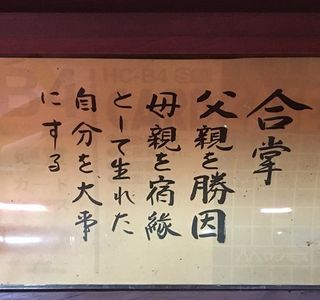 合掌
父親を勝因
母親を宿縁
として生れた
自分を大事
にする
HC-B4